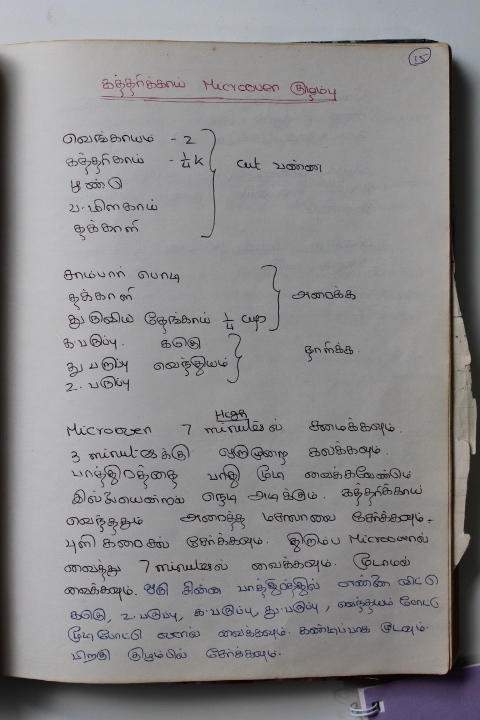 15
கத்தரிக்காய் Microoven குழம்பு
வெங்காயம் - 2
கத்தரிகாய் - 1/4 K
பூண்டு
ப.மிளகாய்
தக்காளி
cut பண்ண
சாம்பார் பொடி
தக்காளி
துருவிய தேங்காய் 1/4 cup
அரைக்க
க.பருப்பு. கடுகு
து பருப்பு வெந்தியம்
உ. பருப்பு
தாளிக்க.
High
Microoven 7 minutesல் சமைக்கவும்.
3 minutesக்கு ஒருமுறை கலக்கவும்.
பாத்திரத்தை பாதி மூடி வைக்கவேண்டும்
இல்லையென்றால் நெடி அடிக்கும். கத்தரிக்காய்
வெந்ததும் அரைத்த மசாலாவை சேர்க்கவும்.
புளி கரைசல் சேர்க்கவும். திரும்ப Microovenல்
வைத்து 7 minutesல் வைக்கவும். மூடாமல்
வைக்கவும். ஒரு சின்ன பாத்திரத்தில் எண்ணெ விட்டு
கடுகு, உ.பருப்பு, க.பருப்பு, து.பருப்பு, வெந்தயம் போட்டு
மூடிபோட்டு வைக்கவும். கண்டிப்பாக மூடவும்.
பிறகு குழம்பில் சேர்க்கவும்.